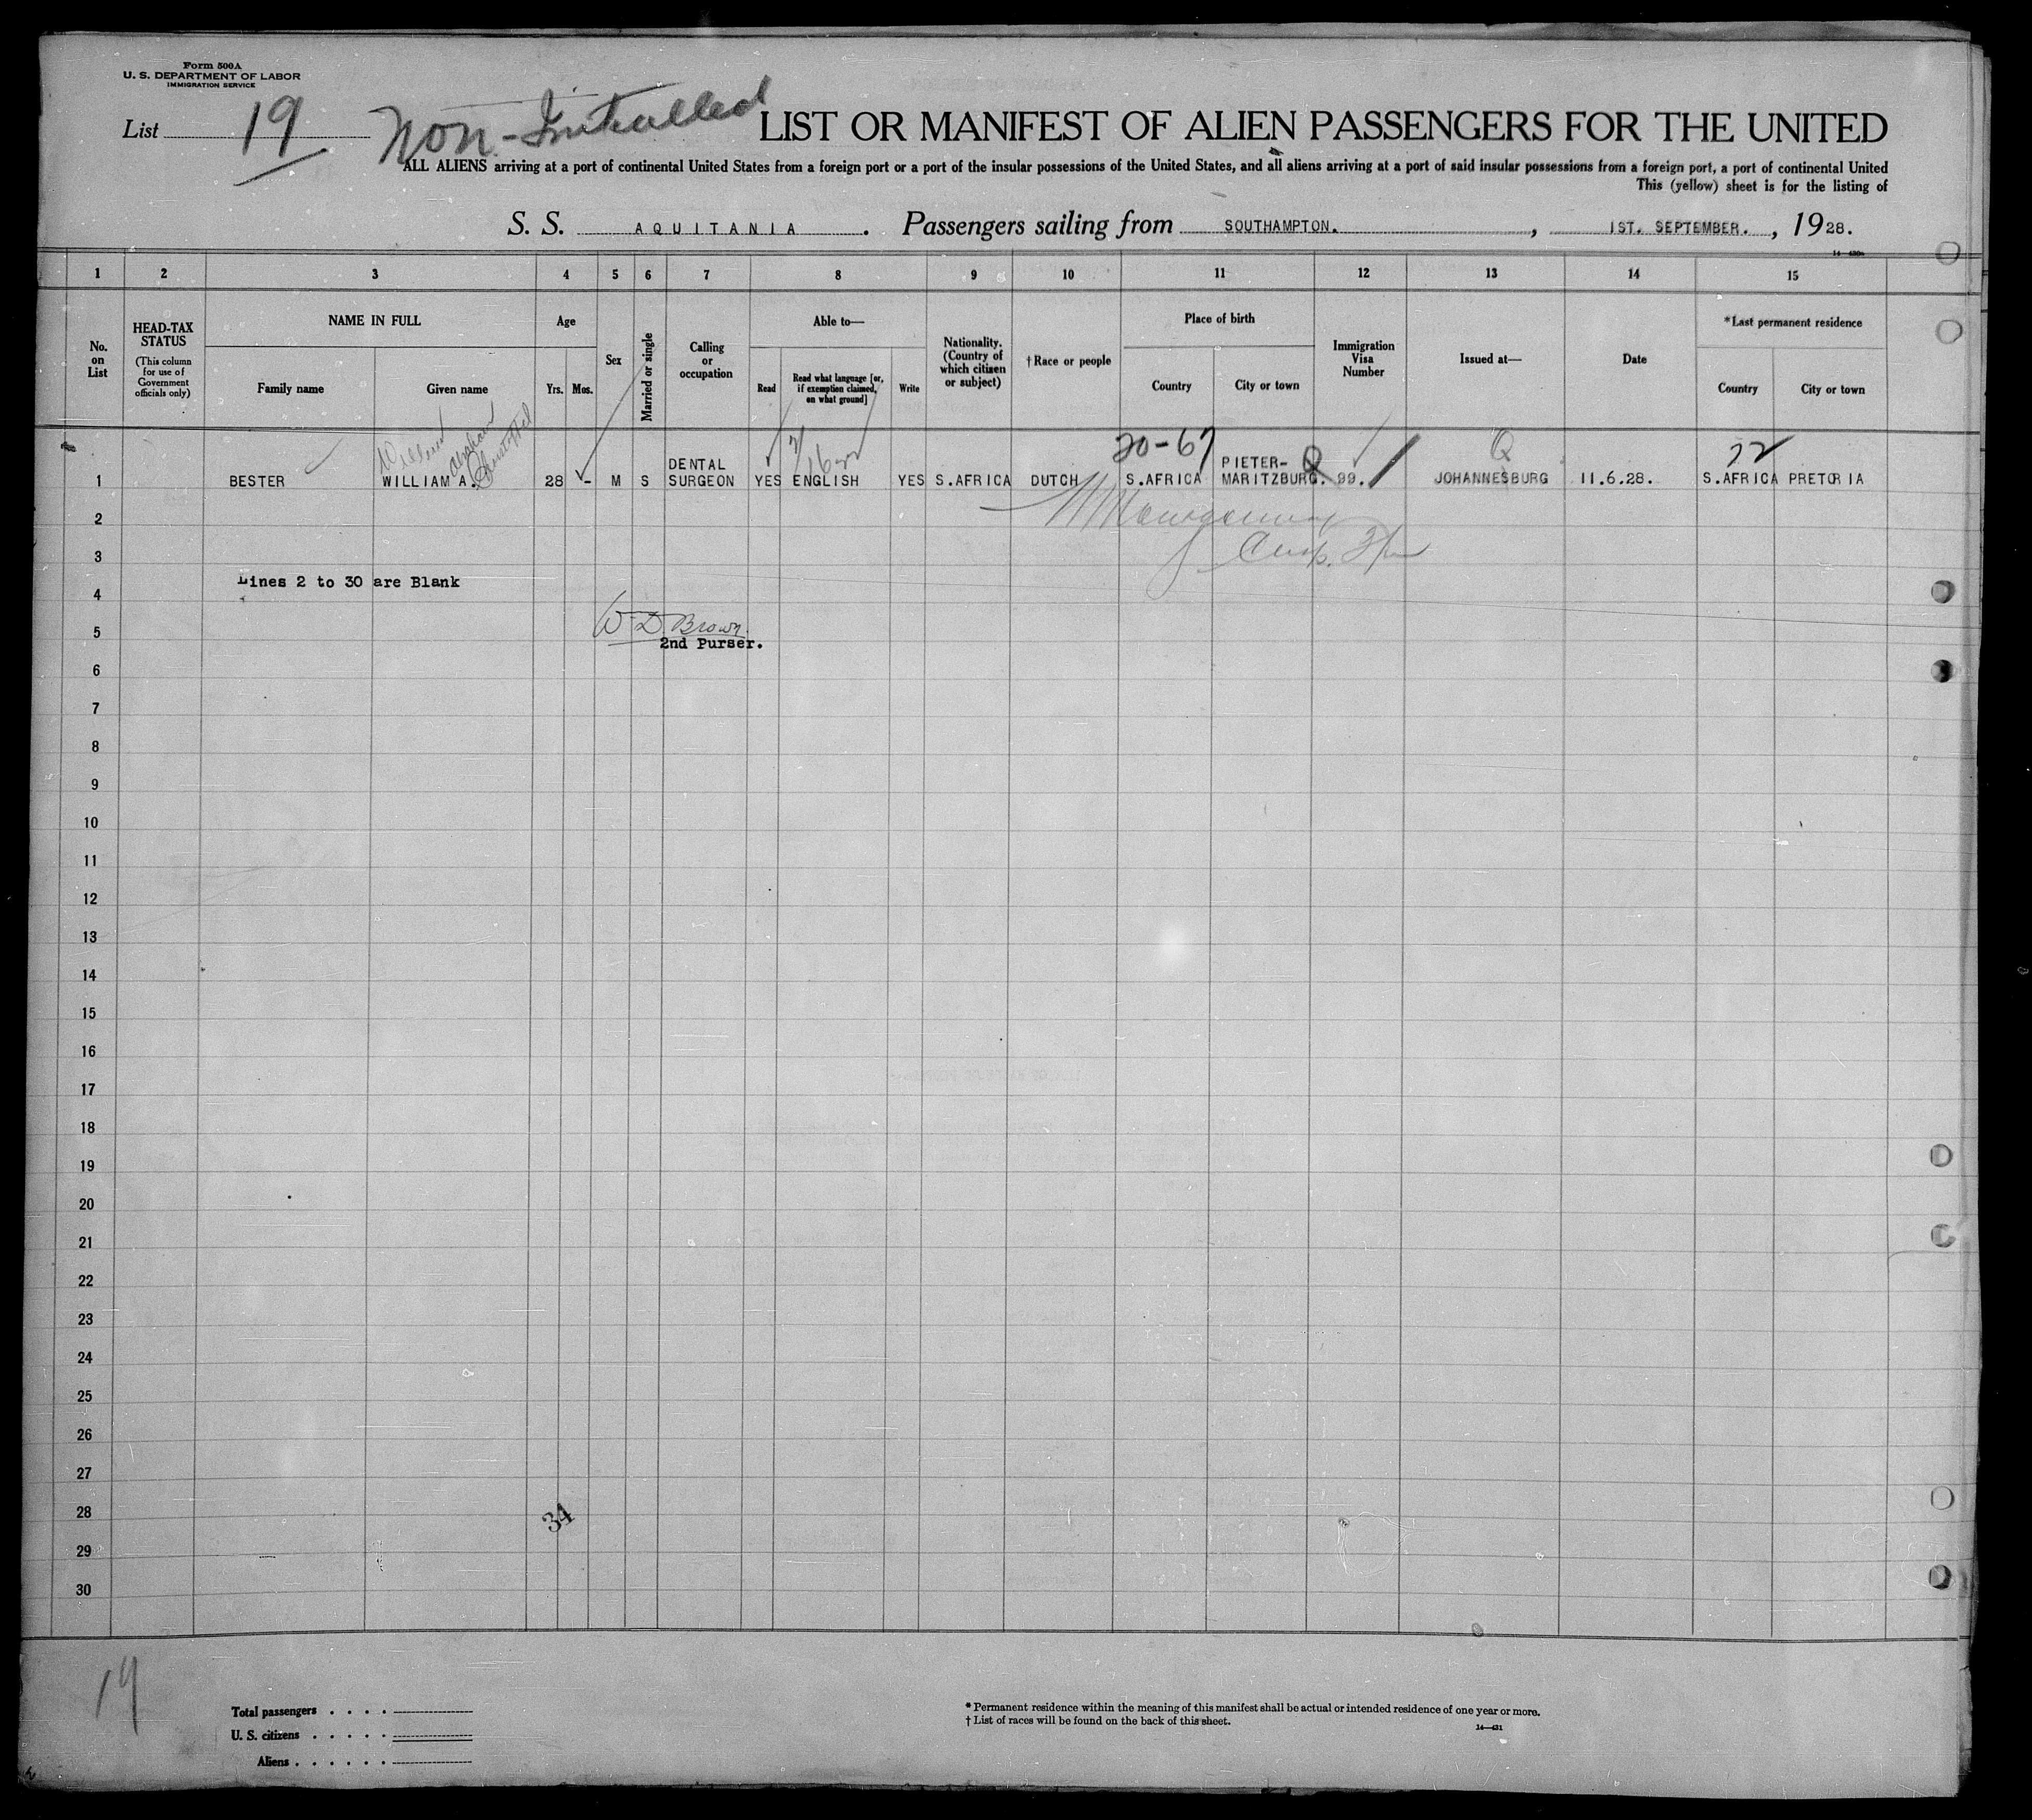 Form 500A
U. S. DEPARTMENT OF LABOR
IMMIGRATION SERVICE
List 19
Non-
LIST OR MANIFEST OF ALIEN PASSENGERS FOR THE UNITED
ALL ALIENS arriving at a port of continental United States from a foreign port or a port of the insular possessions of the United States, and all aliens arriving at a port of said insular possessions from a foreign port, a port of continental United
This (yellow) sheet is for the listing of
S. S. AQUITANIA. Passengers sailing from SOUTHAMPTON. , 1ST. SEPTEMBER. , 1928.
1 2 3 4 5 6 7 8 9 10 11 12 13 14 15
No. on List
HEAD-TAX STATUS
(This column for use of Government officials only)
NAME IN FULL
Family name
Given name
Age
Yrs. Mos.
Sex
Married or single
Calling or occupation
Able to—
Read
Read what language [or, if exemption claimed, on what ground]
Write
Nationality. (Country of which citizen or subject)
†Race or people
Place of birth
Country
City or town
Immigration Visa Number
Issued at—
Date
*Last permanent residence
Country
City or town
Abraham
20-67
1 BESTER WILLIAM A. 28 - M S DENTAL SURGEON YES ENGLISH YES S.AFRICA DUTCH S.AFRICA PIETER-MARITZBURG. 99. JOHANNESBURG 11.6.28. S.AFRICA PRETORIA
2
3
Lines 2 to 30 are Blank
4
W D Brown
5
2nd Purser.
6
7
8
9
10
11
12
13
14
15
16
17
18
19
20
21
22
23
24
25
26
27
28
34
29
30
19
Total passengers
U. S. citizens
Aliens
* Permanent residence within the meaning of this manifest shall be actual or intended residence of one year or more.
† List of races will be found on the back of this sheet.
14—431